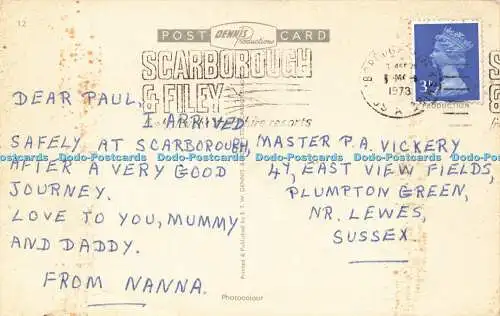 12
POST Dennis Productions CARD
SCARBOROUGH
& FILEY
1973
3P
DEAR PAUL,
I ARRIVED
SAFELY AT SCARBOROUGH,
AFTER A VERY GOOD
JOURNEY.
LOVE TO YOU, MUMMY
AND DADDY.
FROM NANNA.
MASTER P.A. VICKERY
47, EAST VIEW FIELDS,
PLUMPTON GREEN,
NR. LEWES,
SUSSEX.
Printed & Published by E. T. W. DENNIS
Photocolour
Dodo-Postcards Dodo-Postcards Dodo-Postcards Dodo-Postcards Dodo-Postcards